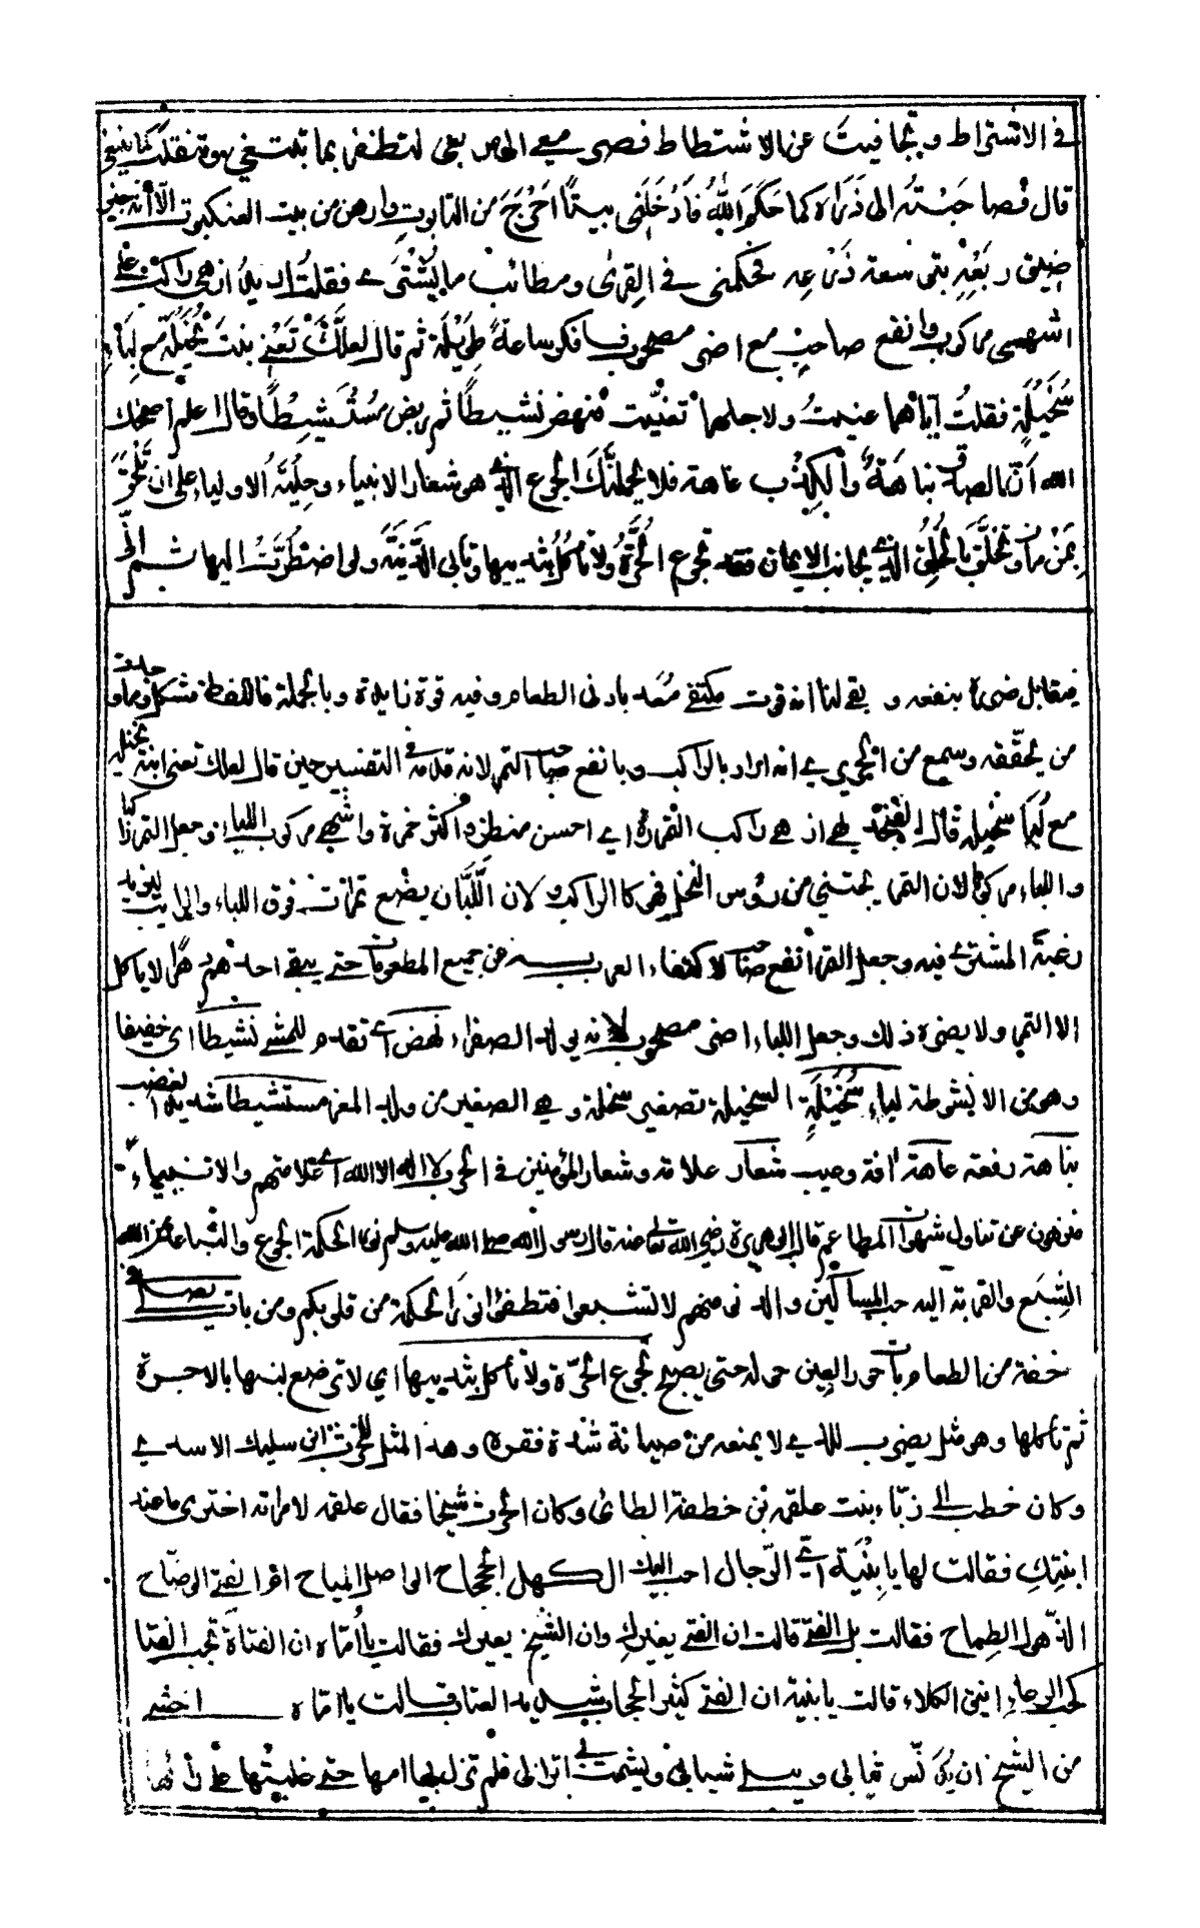 في الاشتراط وتجافيت عن الاشتطاط فصر معي الى مربعي لتظفر بما تبتغي وتنقلب كما ينبغي
قال فصاحبته الى ذراه كما حكم الله فادخلني بيتا احرج من التابوت واوهن من بيت العنكبوت الا انه جبر
ضيق ربعه بتوسعة ذرعه فحكمني في القرى ومطائب ما يشترى فقلت اريد ازهى راكب على
اشهى مركوب وانفع صاحب مع اضر مصحوب فافكر ساعة طويلة ثم قال لعلك تعني بنت نخيلة مع لباء
سخيلة فقلت اياهما عنيت ولاجلهما تعنيت فنهض نشيطا ثم ربض مستشيطا وقال اعلم اصلحك
الله ان الصدق نباهة والكذب عاهة فلا يحملنك الجوع الذي هو شعار الانبياء وحلية الاولياء على ان تلحق
بمن مان وتخلق بالخلق الذي يجانب الايمان فقد تجوع الحرة ولا تأكل بثدييها وتأبى الدنية ولو اضطرت اليها ثم اني
فيقابل ضرره بنفعه و يقولنا انه قوت مكتفي معه بادنى الطعام وفيه قوة زايدة وبالجملة فاللفظة مشكل
من يحققه وسمع من الحريري انه اراد بالراكب وبانفع صاحب التمر لانه قدمه في التفسير حين قال لعلك تعني ابنة نخيلة
مع لباء سخيلة قال الفنجد يهي ازهى راكب التمر اي احسن منظرا واكثر حمرة واشهى مركوب اللباء وجعل التمر راكبا
واللباء مركوبا لان التمر يجتنى من رؤس النخل فهو كالراكب لان اللبان يضع تمرات فوق اللباء والرايب ليزيد
رغبة المشتري فيه وجعل التمر انفع صاحب لاكتفاء العرب به عن جميع المطعومات حتى يبقى احدهم دهرا لا ياكل
الا التمر ولا يضره ذلك وجعل اللباء اضر مصحوب لانه يولد الصفراء نهض اي تقدم للمشي نشيطا اي خفيفا
وهو من الانشوطة لباء سخيلة السخيلة تصغير سخلة وهي الصغير من ولد المعز مستشيطا شديد الغضب
نباهة رفعة عاهة افة وعيب شعار علامة وشعار المؤمنين في الحرب لا اله الا الله اي علامتهم والانبياء
منزهون عن تناول شهوات المطاعم قال ابو هريرة رضي الله تعالى عنه قال رسول الله صلى الله عليه وسلم نور الحكمة الجوع والتباعد من الله
الشبع والقربة اليه حب المساكين والدنو منهم لا تشبعوا فتطفئوا نور الحكمة من قلوبكم ومن بات يصلي في
خفة من الطعام بات حور العين حوله حتى يصبح تجوع الحرة ولا تأكل بثدييها اي لا ترضع لبنها بالاجرة
ثم تأكلها وهو مثل يضرب للذي لا يمنعه من صيانة شدة فقره وهذا المثل للحرث ابن سليك الاسدي
وكان خطب الى زباء بنت علقمة بن خطفة الطائي وكان الحرث شيخا فقال علقمة لامراته اختبري ما عند
ابنتك فقالت لها يا بنية اي الرجال احب اليك الكهل الجحجاح الواصل المياح ام الفتى الوضاح
الذهول الطماح فقالت بل الفتى قالت ان الفتى يغيرك وان الشيخ يعيرك فقالت يا اماه ان الفتاة تحب الفتا
كحب الرعاء انيق الكلاء قالت يا بنية ان الفتى كثير الحجاب شديد العتاب قالت يا اماه اخشى
من الشيخ ان يدنس ثيابي ويبلي شبابي ويشمت بي اترابي فلم تزل بها امها حتى غلبتها على رأيها